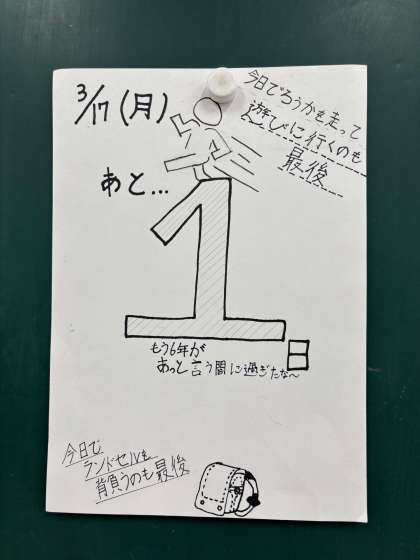 3/17(月)
今日でろうかを走って
遊びに行くのも
最後
あと…
1日
もう6年が
あっと言う間に過ぎたな〜
今日で
ランドセルを
背負うのも最後